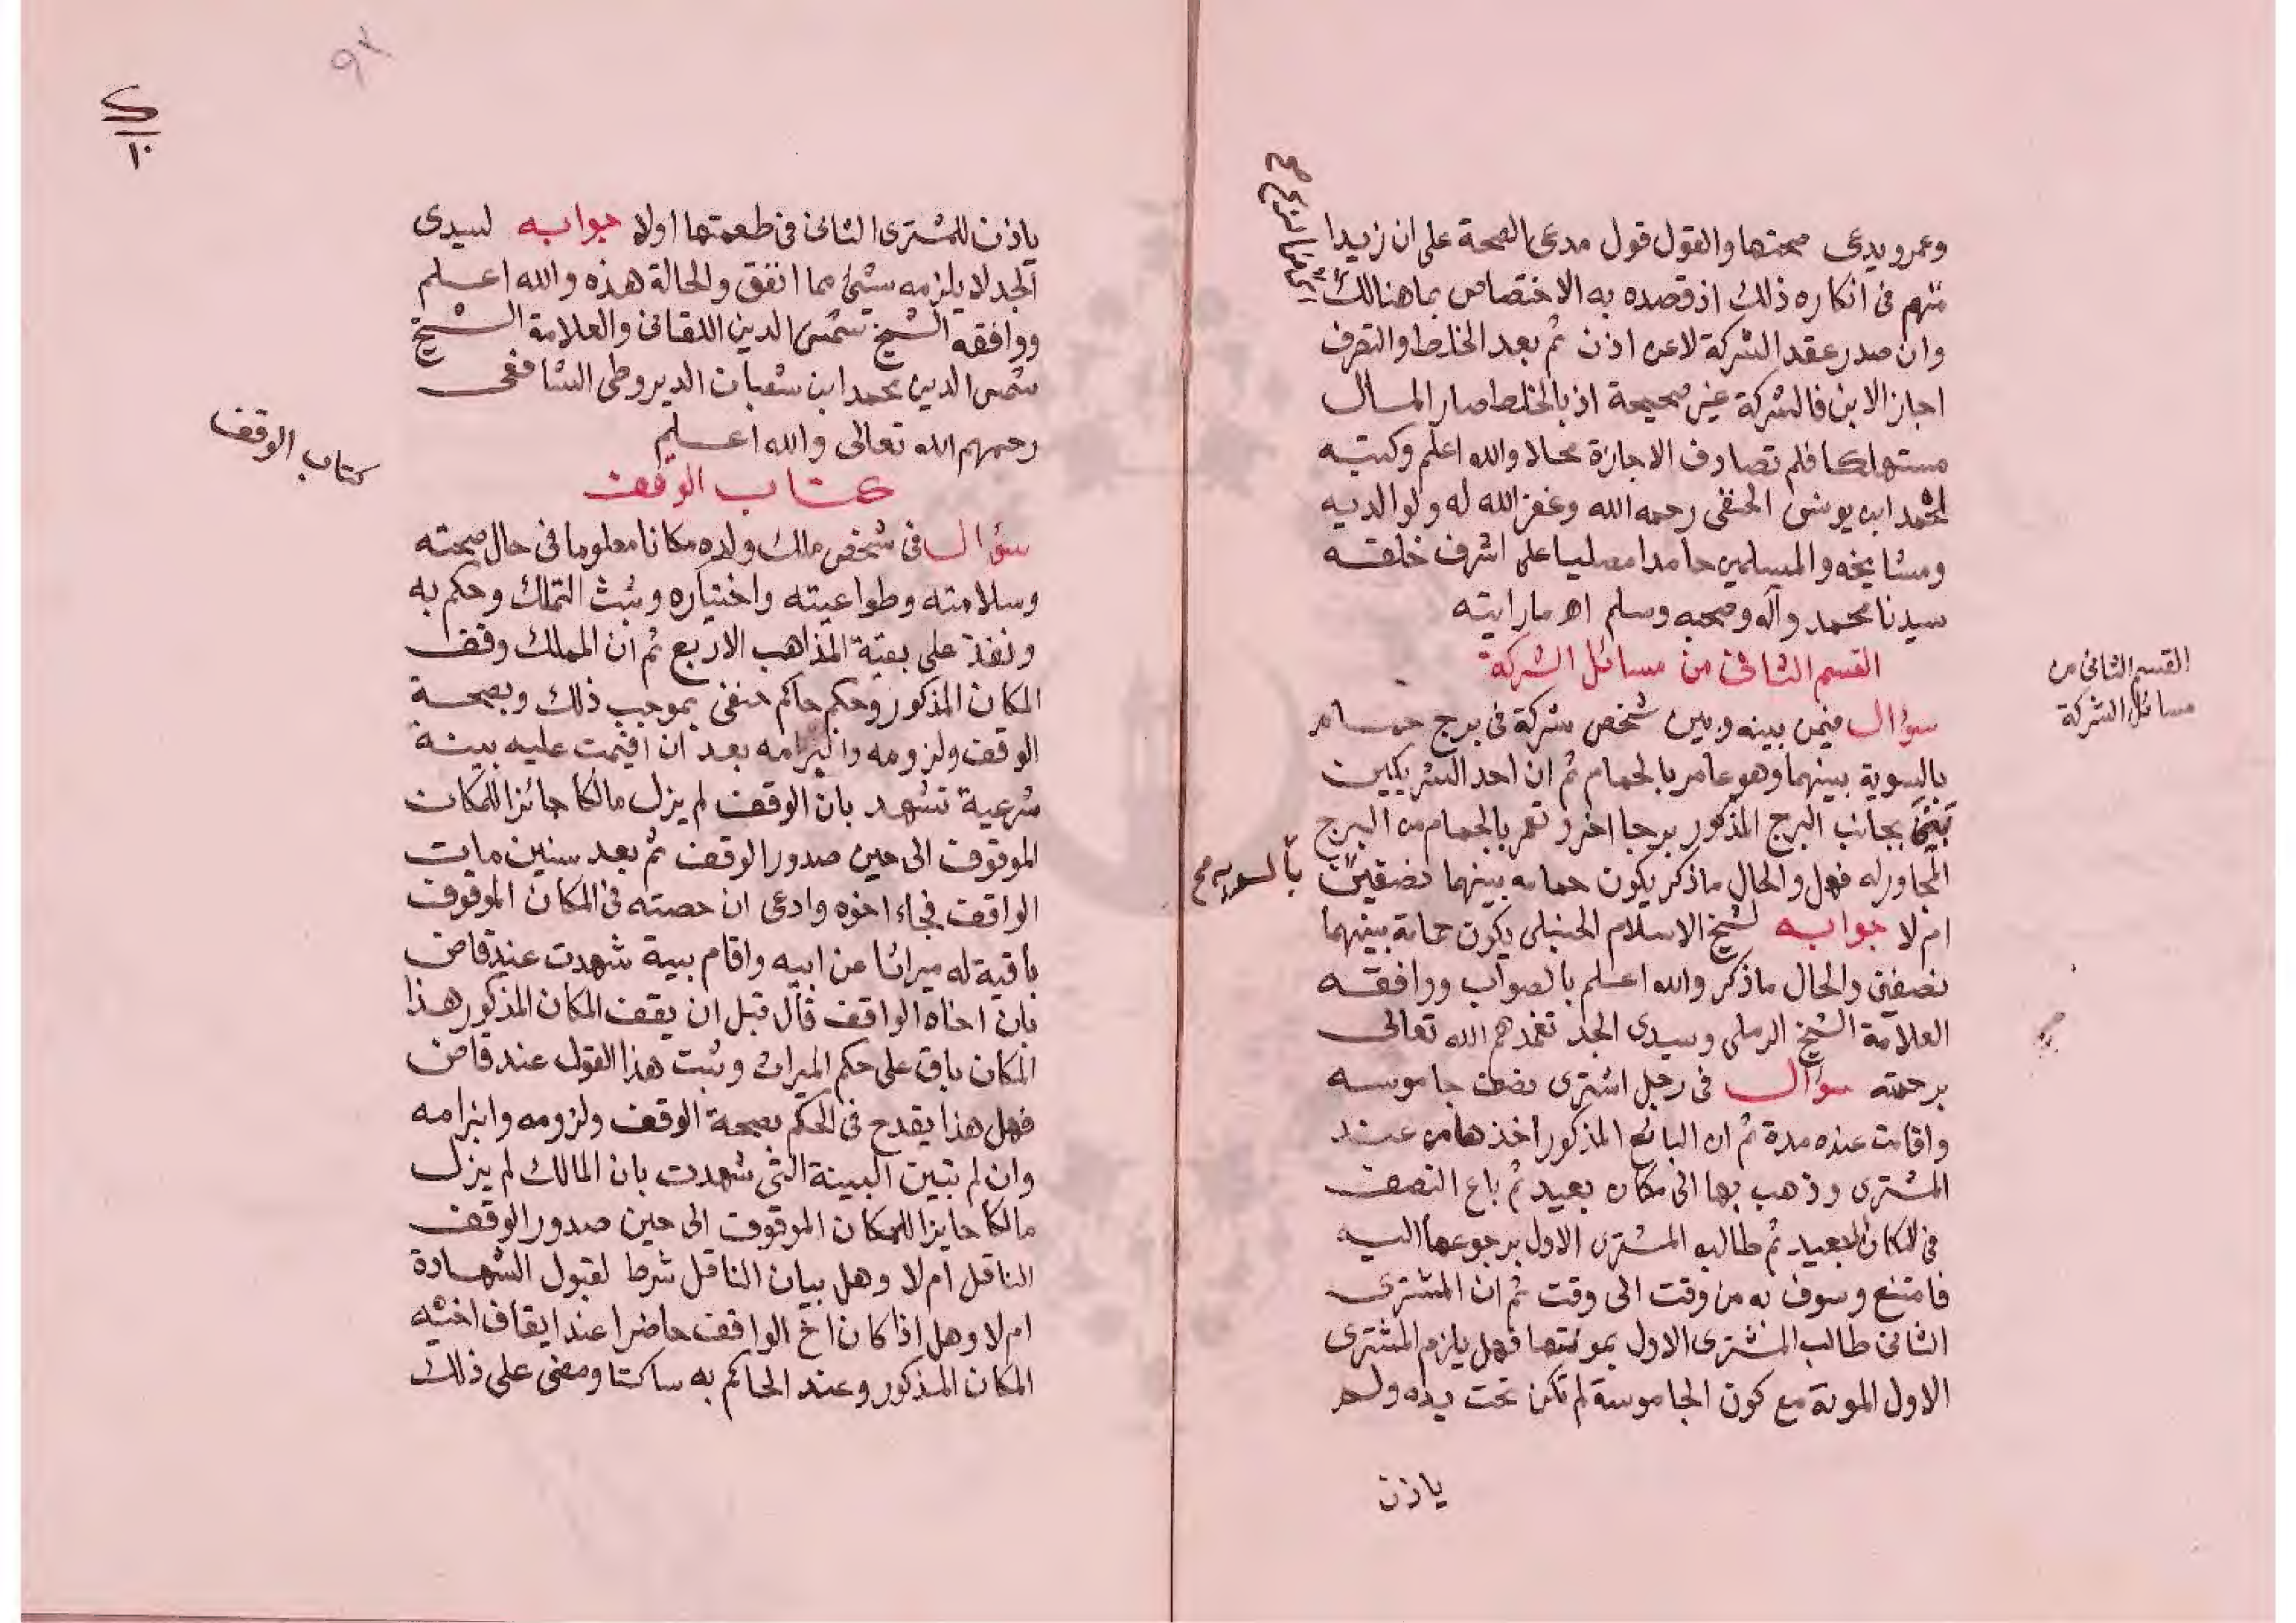 وعمرو يدعى صحتها والقول قول مدعى الصحة على ان زيدا
متهم فى انكاره ذلك اذ قصده به الاختصاص بما هنالك
وان صدر عقد الشركة لاعن اذن ثم بعد الخلط والتصرف
اجاز الابن فالشركة غير صحيحة اذ بالخلط صار المال
مستهلكا فلم تصادف الاجازة محالا والله اعلم وكتبه
احمد ابن يونس الحنفى رحمه الله وغفر الله له ولوالديه
ومشايخه والمسلمين حامدا مصليا على اشرف خلقه
سيدنا محمد وآله وصحبه وسلم اه ما رايته
القسم الثانى من مسائل الشركة
القسم الثانى من
مسائل الشركة
سؤال فيمن بينه وبين شخص شركة فى برج حمام
بالسوية بينهما وهو عامر بالحمام ثم ان احد الشريكين
بنى بجانب البرج المذكور برجا اخر وتعمر بالحمام من البرج
المجاور له فهل والحال ما ذكر يكون حمامه بينهما نصفين
بالسويه صح
ام لا جوابه لشيخ الاسلام الحنبلى يكون حمامه بينهما
نصفين والحال ما ذكر والله اعلم بالصواب ووافقه
العلامة الشيخ الرملى وسيدى الجد تغمدهم الله تعالى
برحمته سؤال فى رجل اشترى نصف جاموسه
واقامت عنده مدة ثم ان البائع المذكور اخذها من عند
المشترى وذهب بها الى مكان بعيد ثم باع النصف
فى المكان البعيد ثم طالبه المشترى الاول برجوعها اليه
فامتنع وسوف به من وقت الى وقت ثم ان المشترى
الثانى طالب المشترى الاول بمونتها فهل يلزم المشترى
الاول المونة مع كون الجاموسة لم تكن تحت يده ولم
ياذن
٩٢
ياذن للمشترى الثانى فى طعمتها اولا جوابه لسيدى
الجد لا يلزمه شئ مما اتفق والحالة هذه والله اعلم
ووافقه الشيخ شمس الدين اللقانى والعلامة الشيخ
شمس الدين محمد ابن شعبان الديروطى الشافعى
رحمهم الله تعالى والله اعلم
كتاب الوقف
كتاب الوقف
سؤال فى شخص ملك ولده مكانا معلوما فى حال صحته
وسلامته وطواعيته واختياره وثبت التملك وحكم به
ونفذ على بقية المذاهب الاربع ثم ان المملك وقف
المكان المذكور وحكم حاكم حنفى بموجب ذلك وبصحة
الوقف ولزومه وانبرامه بعد ان اقيمت عليه بينة
شرعية تشهد بان الوقف لم يزل مالكا حائزا للمكان
الموقوف الى حين صدور الوقف ثم بعد سنين مات
الواقف فجاء اخوه وادعى ان حصته فى المكان الموقوف
باقية له ميراثا عن ابيه واقام بينة شهدت عند قاض
بان اخاه الواقف قال قبل ان يقف المكان المذكور هذا
المكان باق على حكم الميراث وثبت هذا القول عند قاض
فهل هذا يقدح فى الحكم بصحة الوقف ولزومه وانبرامه
وان لم تبين البينة التى شهدت بان المالك لم يزل
مالكا حايزا للمكان الموقوف الى حين صدور الوقف
الناقل ام لا وهل بيان الناقل شرط لقبول الشهادة
ام لا وهل اذا كان اخ الواقف حاضرا عند ايقاف اخيه
المكان المذكور وعند الحاكم به ساكتا ومضى على ذلك